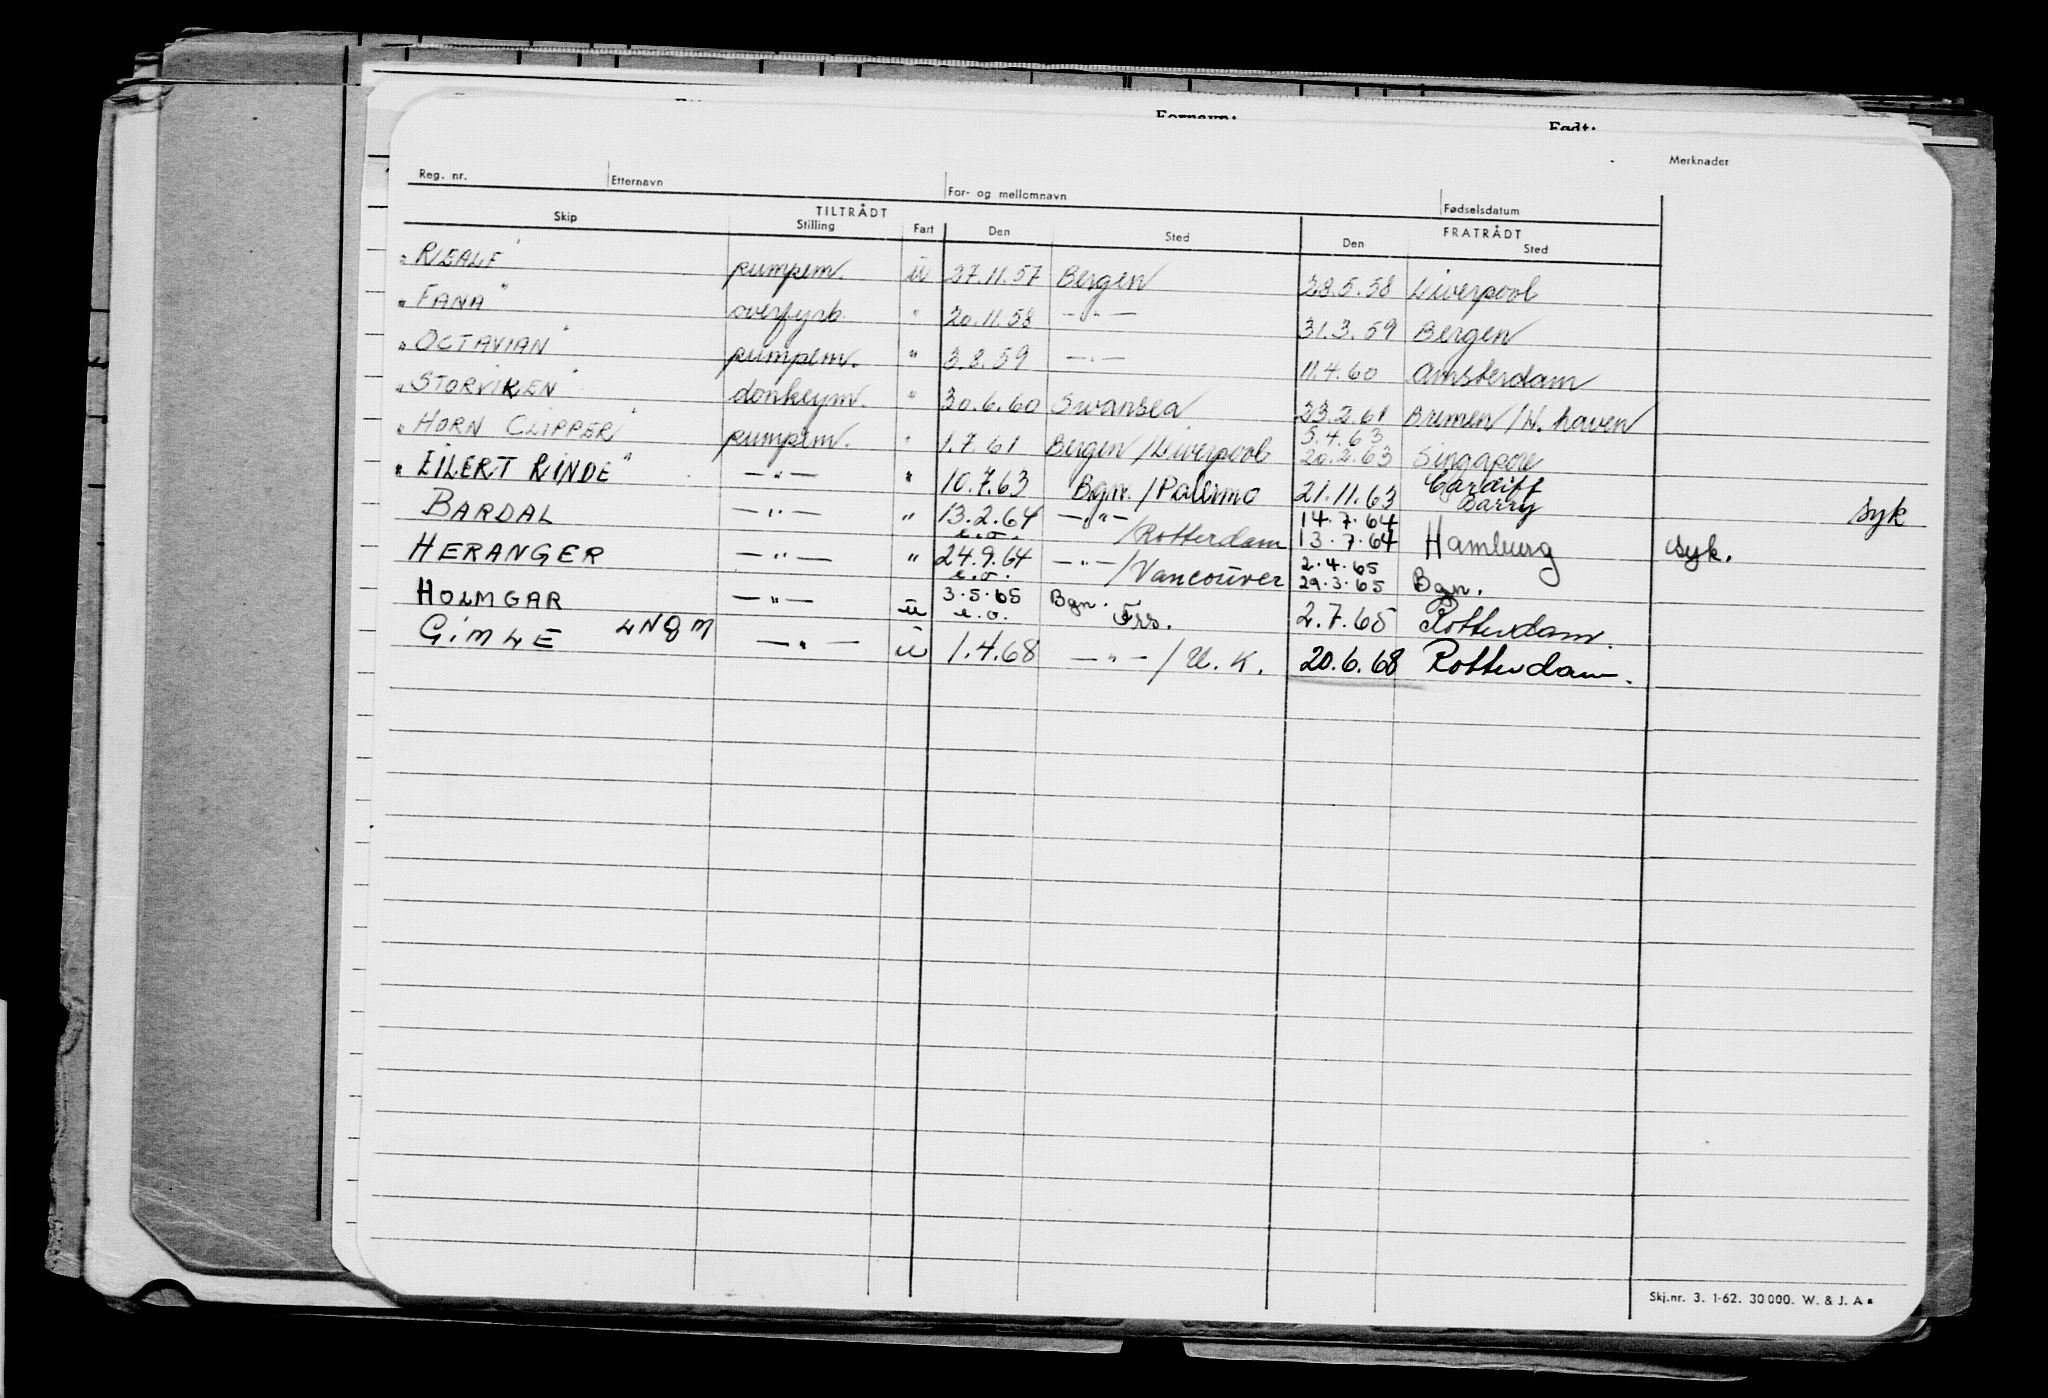 Fornavn: Født:
Merknader
Reg. nr. Etternavn For- og mellomnavn Fødselsdatum
TILTRÅDT FRATRÅDT
Skip Stilling Fart Den Sted Den Sted
" RISALF " pumpem. ü 27.11.57 Bergen 28.5.58 Liverpool
" FANA " overfyrb. " 20.11.58 — " — 31.3.59 Bergen
" OCTAVIAN " pumpem. " 3.8.59 — " — 11.4.60 Amsterdam
" STORVIKEN " donkeym. " 30.6.60 Swansea 23.2.61 Bremen / W. haven
5.4.63
" HORN CLIPPER " pumpem. " 1.7.61 Bergen / Liverpool 20.2.63 Singapore
Cardiff
" EILERT RINDE " — " — " 10.7.63 Bgn. / Palermo 21.11.63 Barry syk
14.7.64
BARDAL — " — " 13.2.64 — " — / Rotterdam 13.7.64 Hamburg syk.
e.o.
2.4.65
HERANGER — " — " 24.9.64 — " — / Vancouver 29.3.65 Bgn.
e.o.
HOLMGAR — " — ü 3.5.65 Bgn. Frs. 2.7.65 Rotterdam.
e.o.
GIMLE LNQM — " — ü 1.4.68 — " — / U.K. 20.6.68 Rotterdam.
Skj.nr. 3. 1-62. 30 000. W. & J. A s